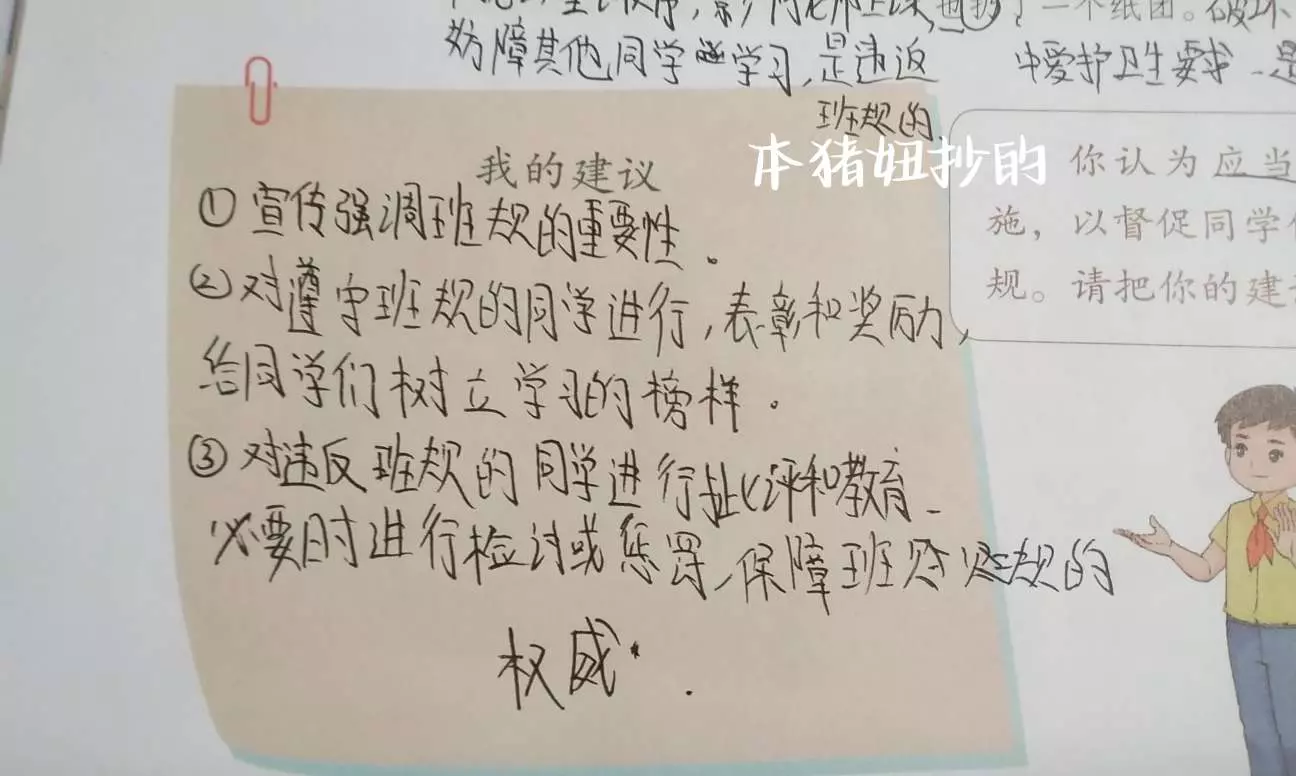 影响老师上课,
了一个纸团。破坏
妨障其他同学学习,是违返
班规的
中爱护卫生要求
本猪妞抄的
我的建议
①宣传强调班规的重要性。
②对遵守班规的同学进行,表彰和奖励,
给同学们树立学习的榜样.
③对违反班规的同学进行批评和教育
必要时进行检讨或惩罚,保障班规的
权威.
你认为应当
施,以督促同学
规。请把你的建